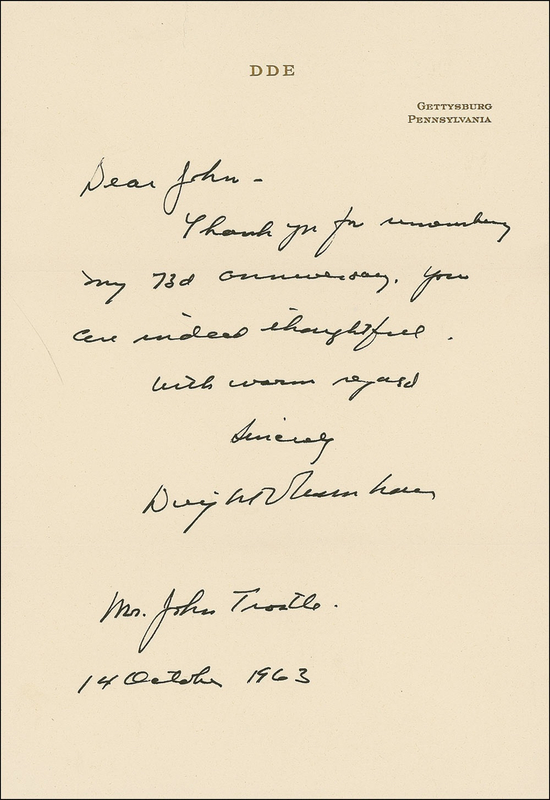 DDE
GETTYSBURG
PENNSYLVANIA
Dear John -
Thank you for remembering
my 73d anniversary. You
are indeed thoughtful.
With warm regard
Sincerely
Dwight D Eisenhower
Mr. John Trostle.
14 October 1963